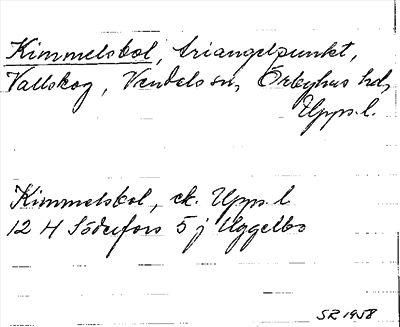 Kimmelsbol, triangelpunkt,
Vallskog, Vendels sn, Örbyhus hd,
Upps. l.
Kimmelsbol, ek. Upps. l
12 H Söderfors 5 j Uggelbo
SR 1958